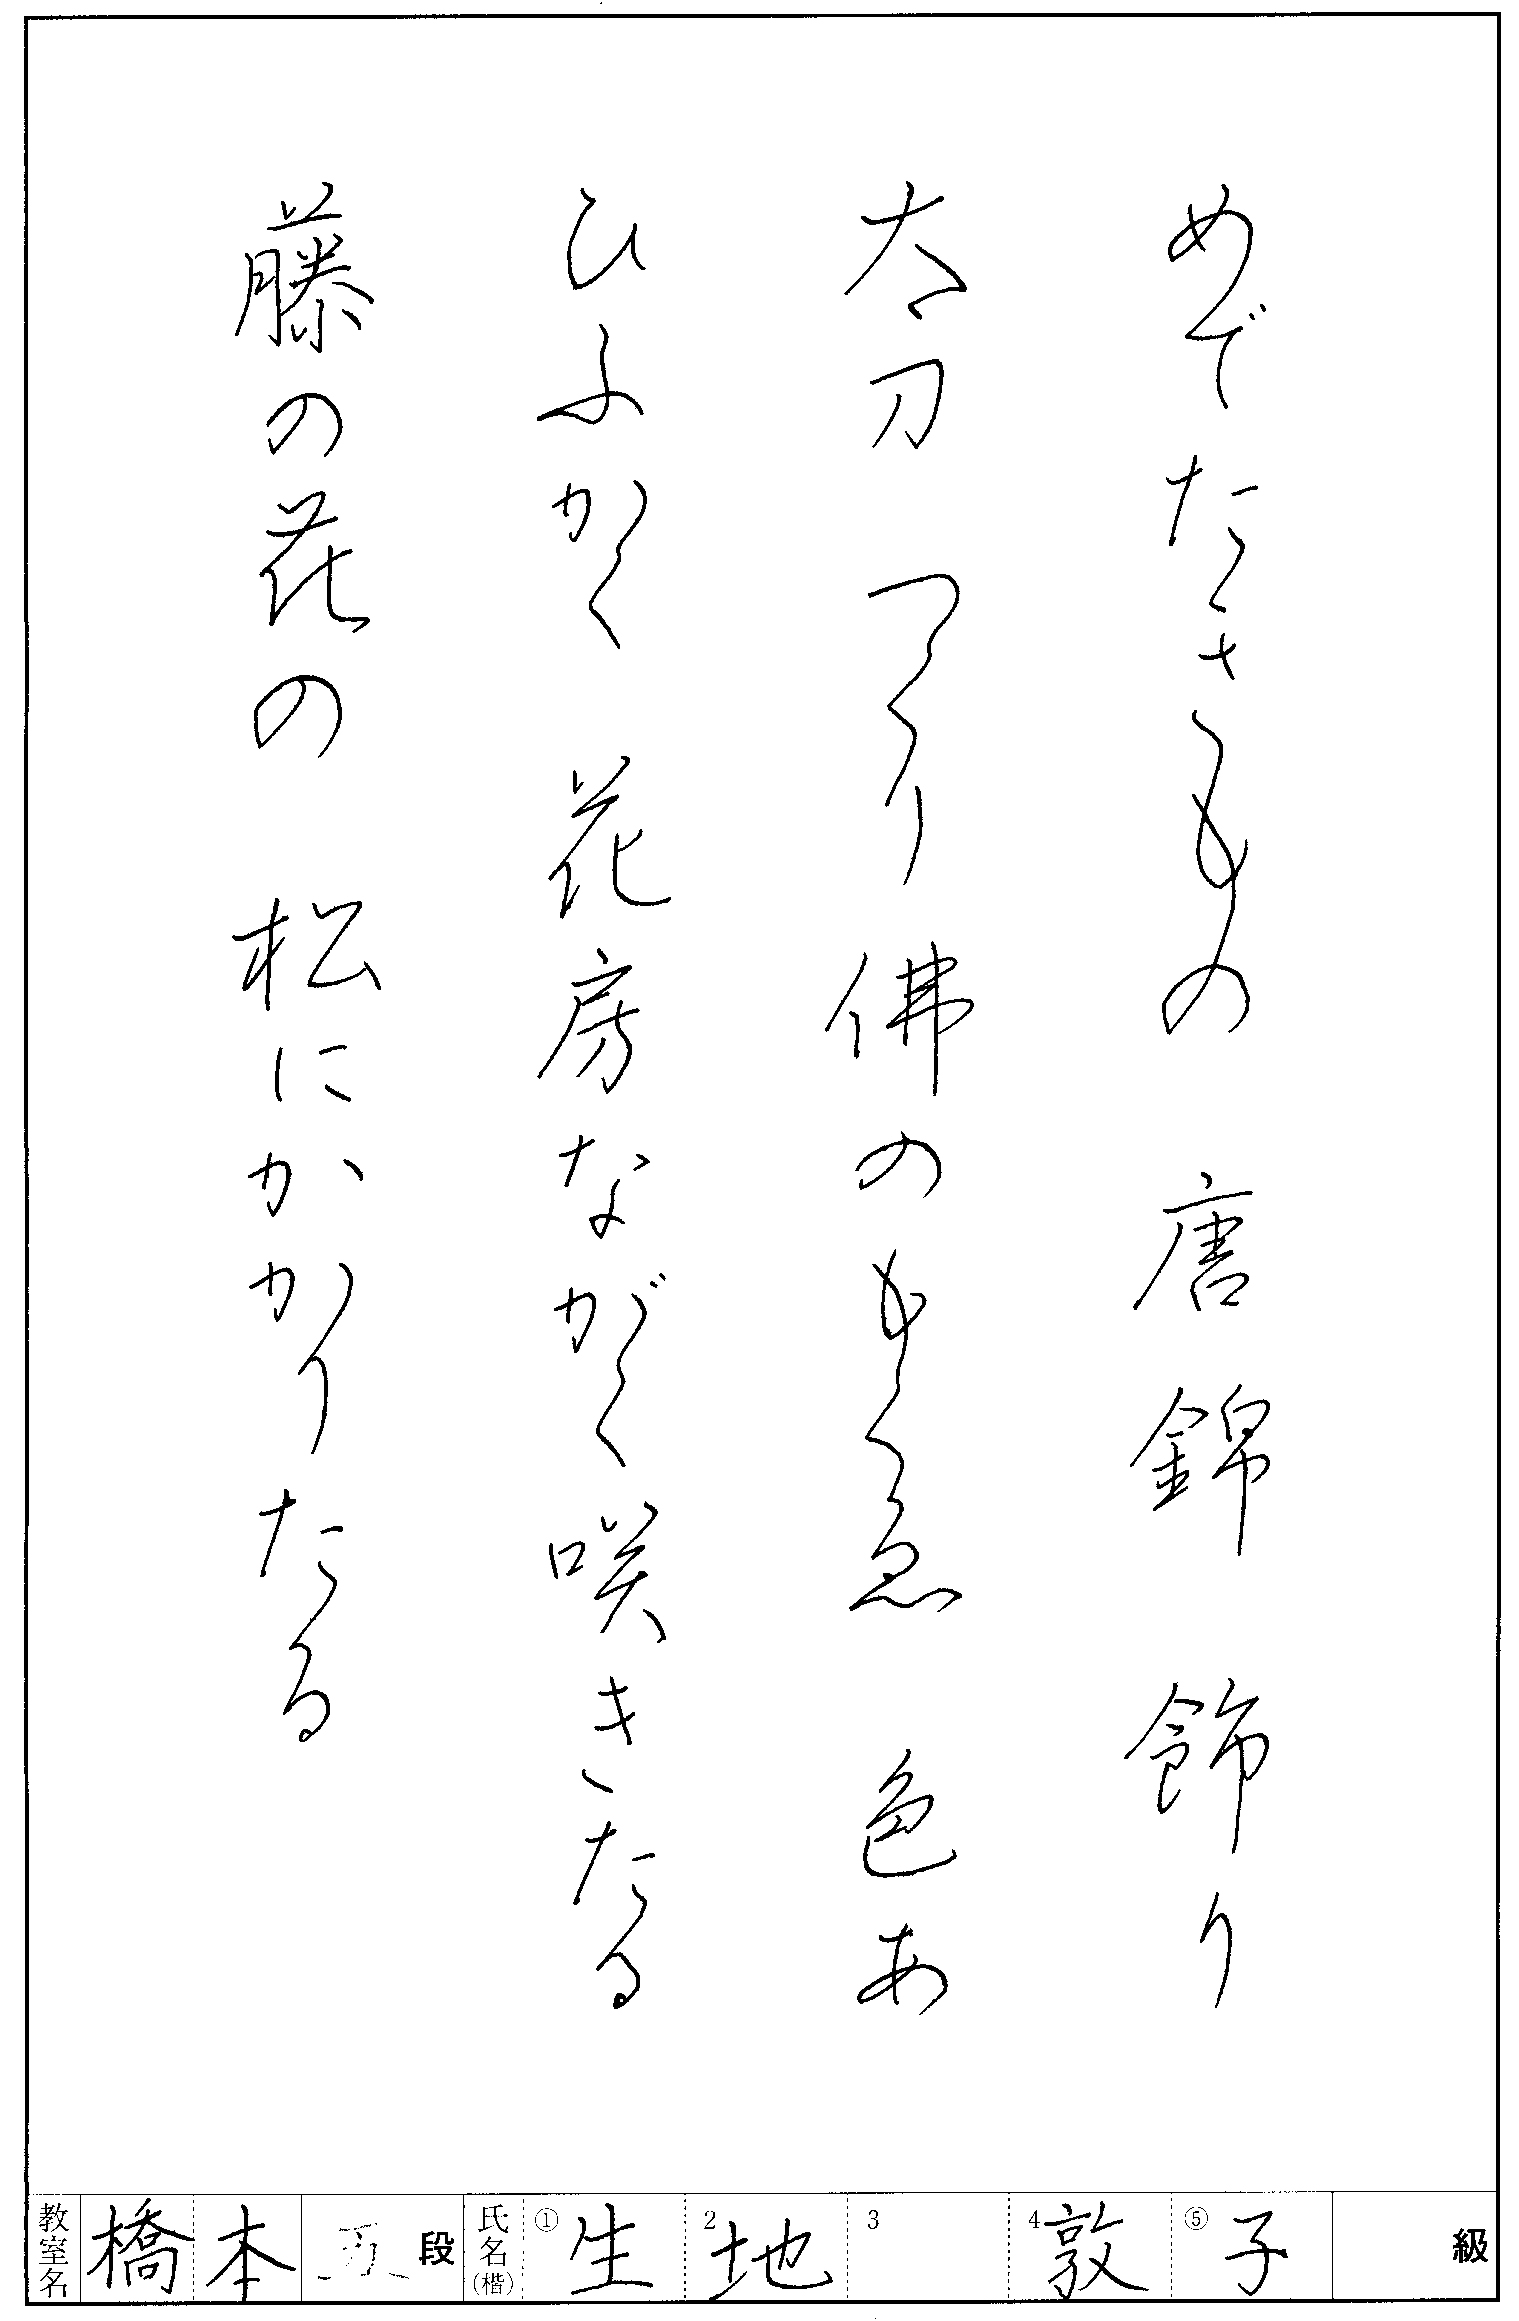 めでたきもの 唐錦 飾り
太刀 つくり佛のもくゑ 色あ
ひふかく 花房ながく咲きたる
藤の花の 松にかかりたる
教室名 橋本 段 氏名(楷) ①生 2地 3 4敦 ⑤子 級